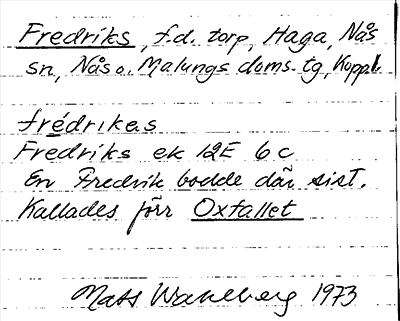 Fredriks, f.d. torp, Haga, Nås
sn, Nås o. Malungs doms. tg, Koppl.
frédrikas
Fredriks ek 12E 6c
En Fredrik bodde där sist.
Kallades förr Oxfallet
Mats Wahlberg 1973